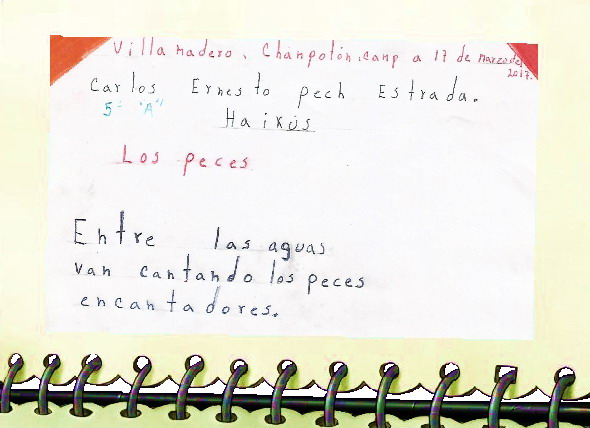 Villa Madero, Chanpotón, camp a 17 de marzo del
2017.
Carlos Ernesto pech Estrada.
5° "A"
Haikús
Los peces
Entre las aguas
van cantando los peces
encantadores.